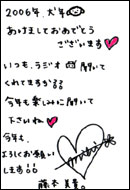 2006年、犬年
あけましておめでとう
ございます
いつも、ラジオ聞いて
くれてますか??
今年も楽しみに聞いて
下さいね
今年も、
よろしくお願い
します!!
藤本美貴。